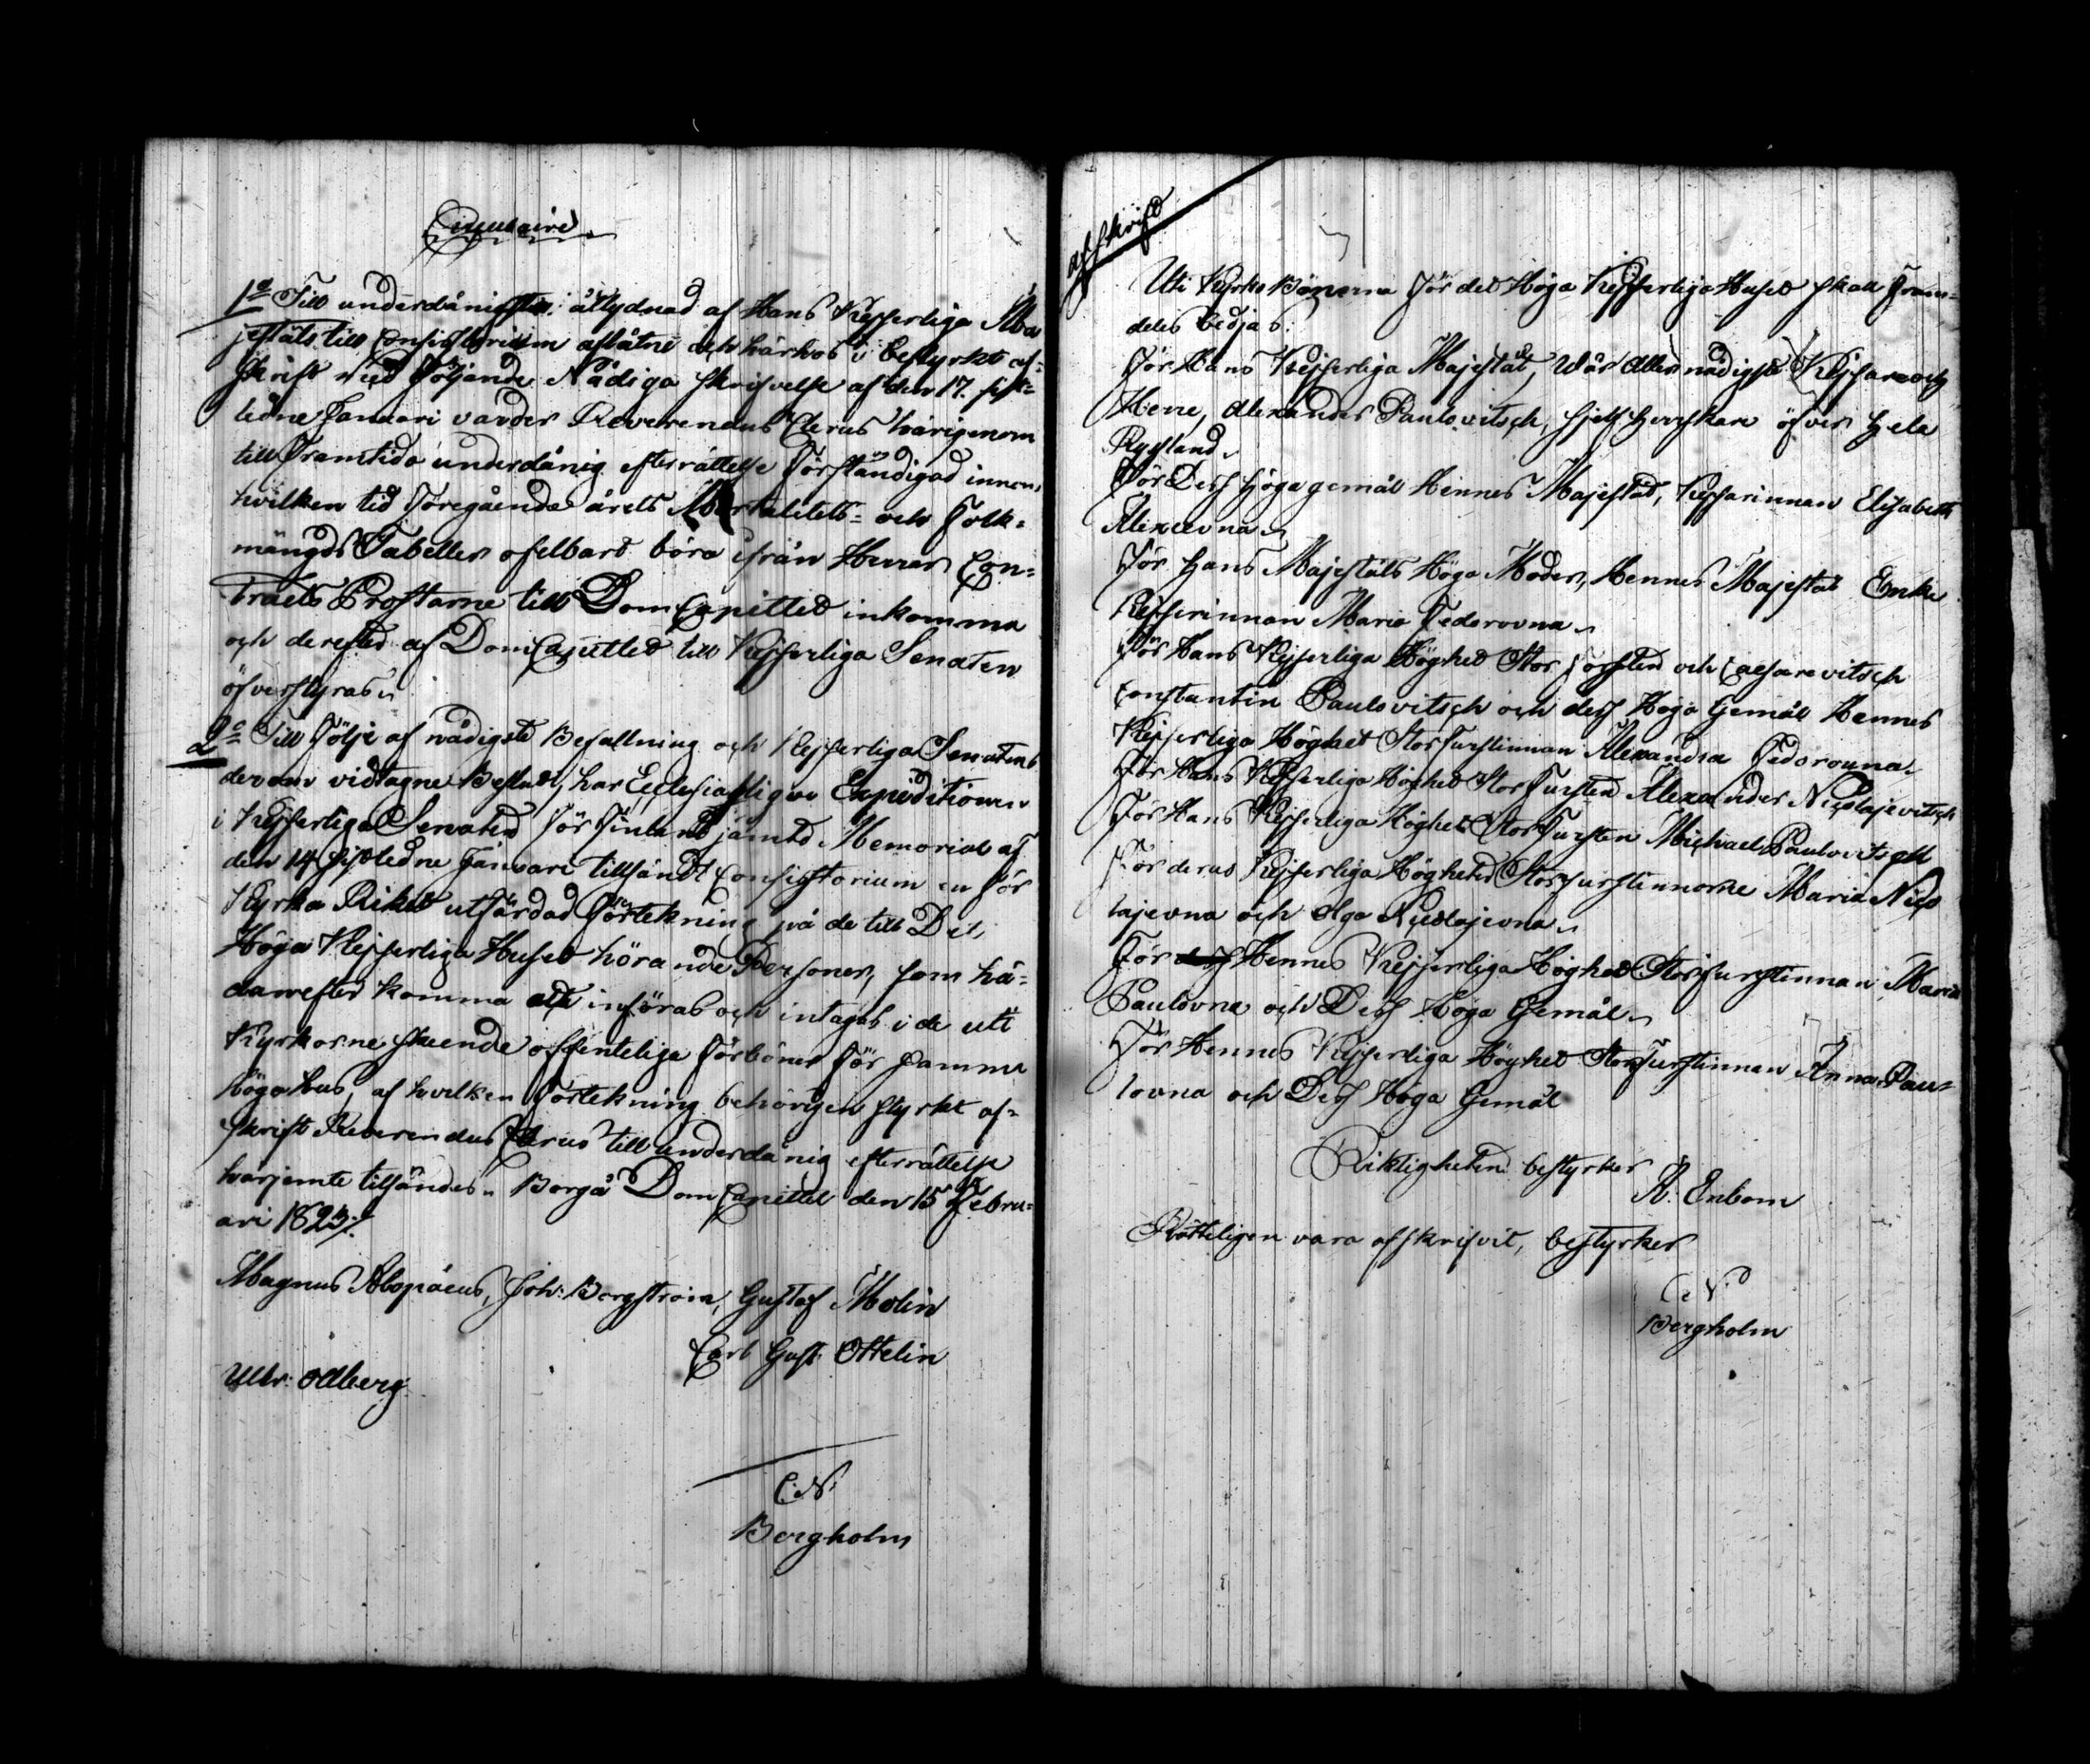 Circulaire
1o Till underdånigste åtlydnad af Hans Kejserliga Ma
jestäts till Consistorium aflåtne och härhos i bestyrkt af-
skrift följande Nådiga skrifvelse af den 17. sist-
ledne Januari varder Reverendus Clerus härigenom
till framtida underdånig efterrättelse förständigad innom
hvilken tid föregående årets Mortalitets- och Folk-
mängds Tabeller ofelbart böra ifrån Herrar Con-
tracts Prostarne till Dom Capitlet inkomma
och derefter af Dom Capitlet till Kejserliga Senaten
öfverstyras.
2o Till följe af nådigste Befallning och Kejserliga Senatens
derom vidtagne Beslut, har Ecclesiastique Expeditionen
i Kejserliga Senaten för Finland jämte Memorial af
den 14 sistledne Januari tillsändt Consistorium en för
Kyrka Riket utfärdad förtekning på de till Det
Höga Kejserliga Huset hörande Personer, som hä-
danefter komma att införas och intagas i de uti
Kyrkorne skeende offenteliga förböner för samma
höga hus, af hvilken förtekning behörigen styrkt af-
skrift Reverendus Clerus till underdånig efterrättelse
härjemte tillsändes. Borgå Dom Capitel den 15 Febru-
ari 1823.
Magnus Alopæus, Joh: Borgström, Gustaf Molin
Carl Gust. Ottelin
Odberg
C. N.
Bergholm
afskrift
Uti Kyrko Bönerna för det Höga Kejserliga Huset skall fram-
deles bedjas:
För Hans Kejserliga Majestät, Wår Allernådigste Kejsare och
Herre, Alexander Paulovitsch, sjelfherrskare öfver hela
Ryssland.
För Dess höga gemål Hennes Majestät, Kejsarinnan Elisabeth
Alexeevna.
För Hans Majestäts Höga Moder, Hennes Majestät Enke
Kejserinnan Maria Fedorovna.
För Hans Kejserliga Höghet Stor forsten och Caesarevitsch
Constantin Paulovitsch och dess Höga Gemål Hennes
Kejserliga Höghet Storfurstinnan Alexandra Fedorovna.
För Hans Kejserliga Höghet Stor Fursten Alexander Nicolajevitsch
För Hans Kejserliga Höghet Storfursten Michael Paulovitsch
För deras Kejserliga Högheter Storfurstinnorne Maria Nico
lajevna och Olga Nicolajevna.
För Hennes Kejserliga Höghet Storfurstinnan Maria
Paulovna och Dess Höga Gemål.
För Hennes Kejserliga Höghet Storfurstinnan Anna Pau-
lovna och Dess Höga Gemål
Riktigheten bestyrker
A. Enbom
Rätteligen vara afskrifvit, bestyrker
C. N.
Bergholm